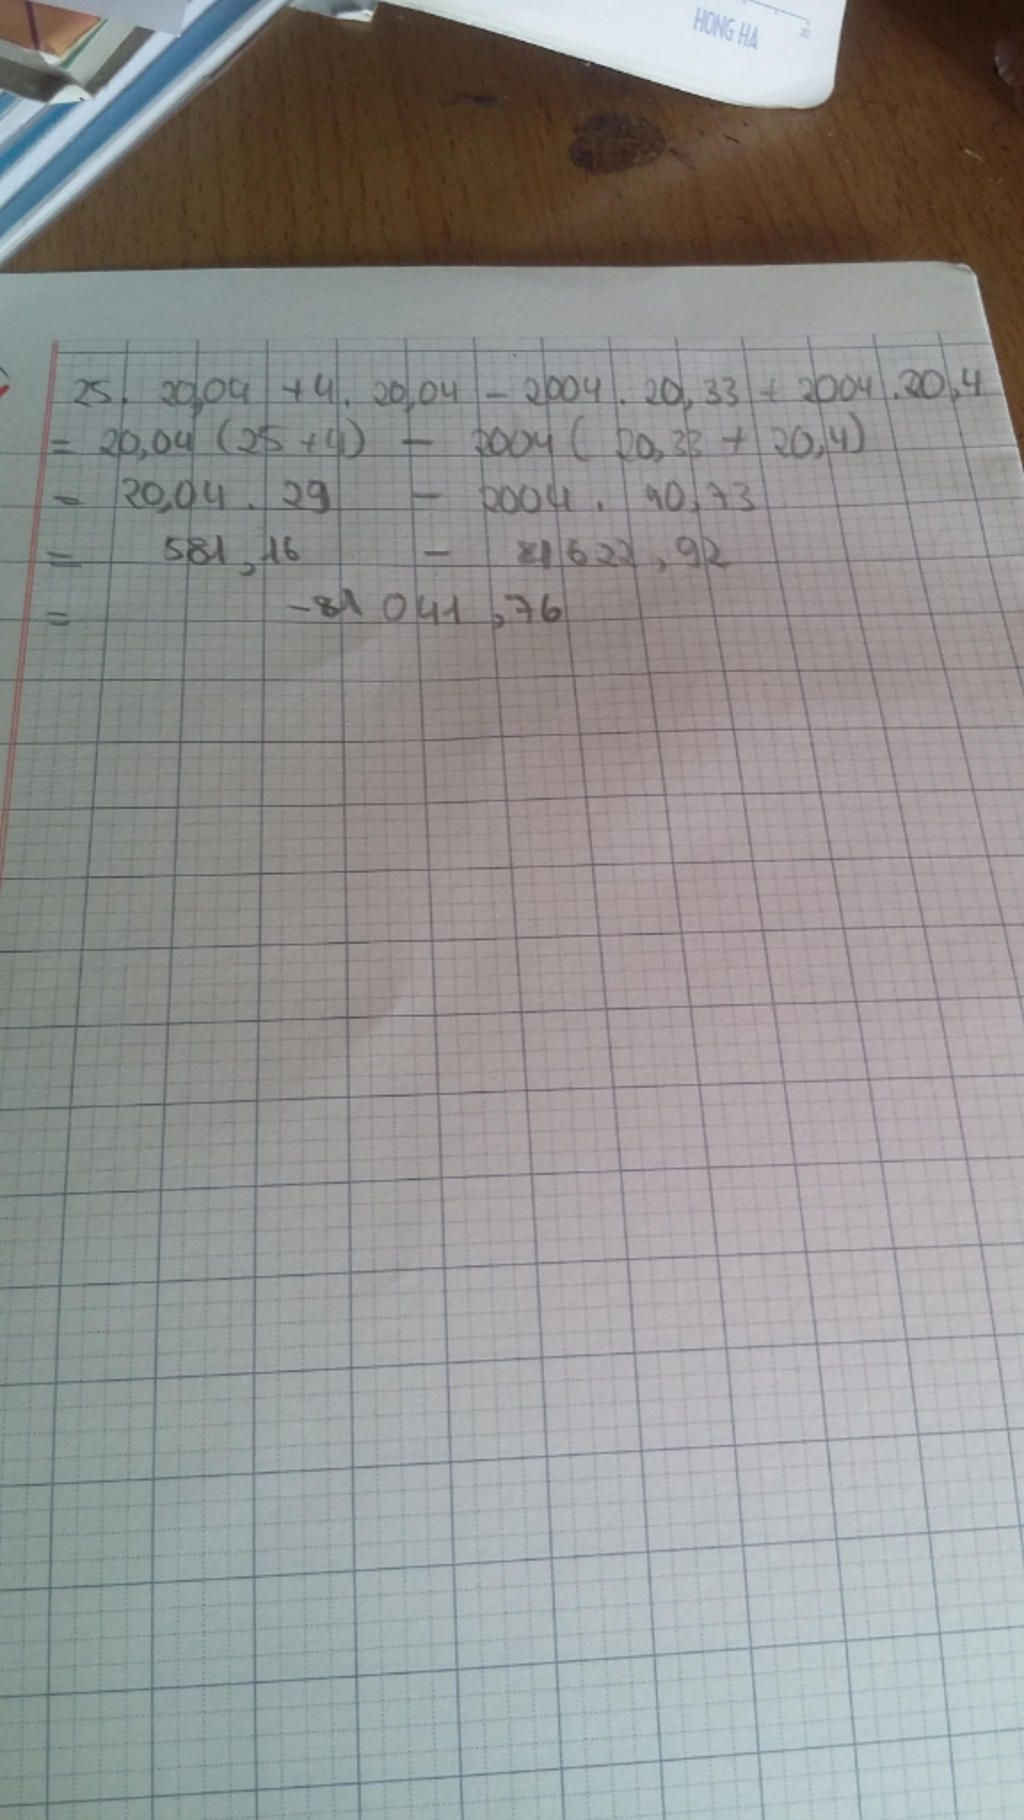 HONG HA
25. 20,04 + 4. 20,04 - 2004. 20,33 + 2004.20,4
= 20,04 (25 + 4) - 2004 ( 20,33 + 20,4)
= 20,04 . 29 - 2004 . 40,73
= 581,16 - 81622,92
= -81041,76